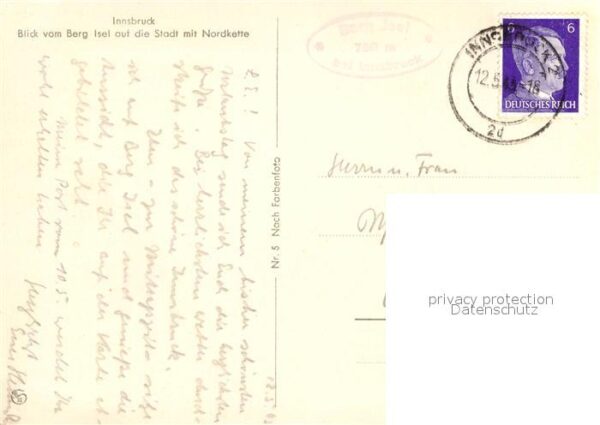 Innsbruck
Blick vom Berg Isel auf die Stadt mit Nordkette
Berg Isel
750 m
bei Innsbruck
INNSBRUCK 2
12.5.43.-16
2d
6 6
DEUTSCHES REICH
Nr. 5 Nach Farbenfoto
12.5.43
L.E.! Von meinem bisher schönsten
Geburtstag sende ich Euch die herzlichsten
Grüße. Bei herrlichstem Wetter durch-
streife ich das schöne Innsbruck.
Eben - zur Mittagszeit sitze
ich auf Berg Isel und genieße die
Aussicht, die Ihr auf der Karte
seht.
Meine Post vom 10.5. werdet Ihr
wohl erhalten haben.
Herrn u. Frau
privacy protection
Datenschutz